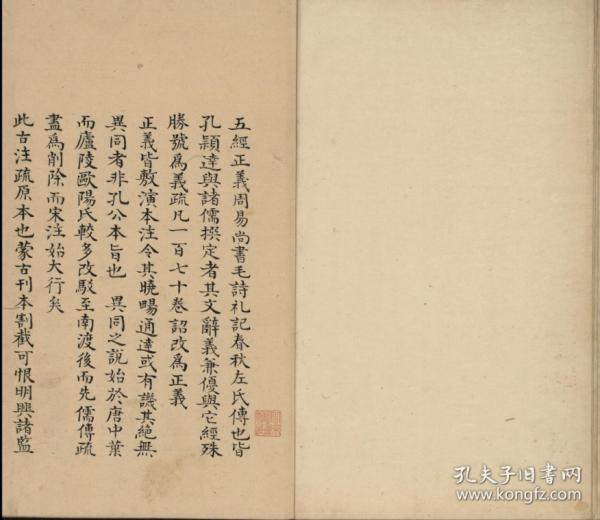 五經正義周易尚書毛詩礼記春秋左氏傳也皆
孔穎達與諸儒撰定者其文辭義兼優與它經殊
勝號為義疏凡一百七十卷詔改為正義
正義皆敷演本注令其曉暢通達或有譏其絕無
異同者非孔公本旨也 異同之說始於唐中葉
而廬陵歐陽氏較多改駁至南渡後而先儒傳疏
盡為削除而宋注始大行矣
此古注疏原本也蒙古刊本割截可恨明興諸監
孔夫子旧书网
www.kongfz.com